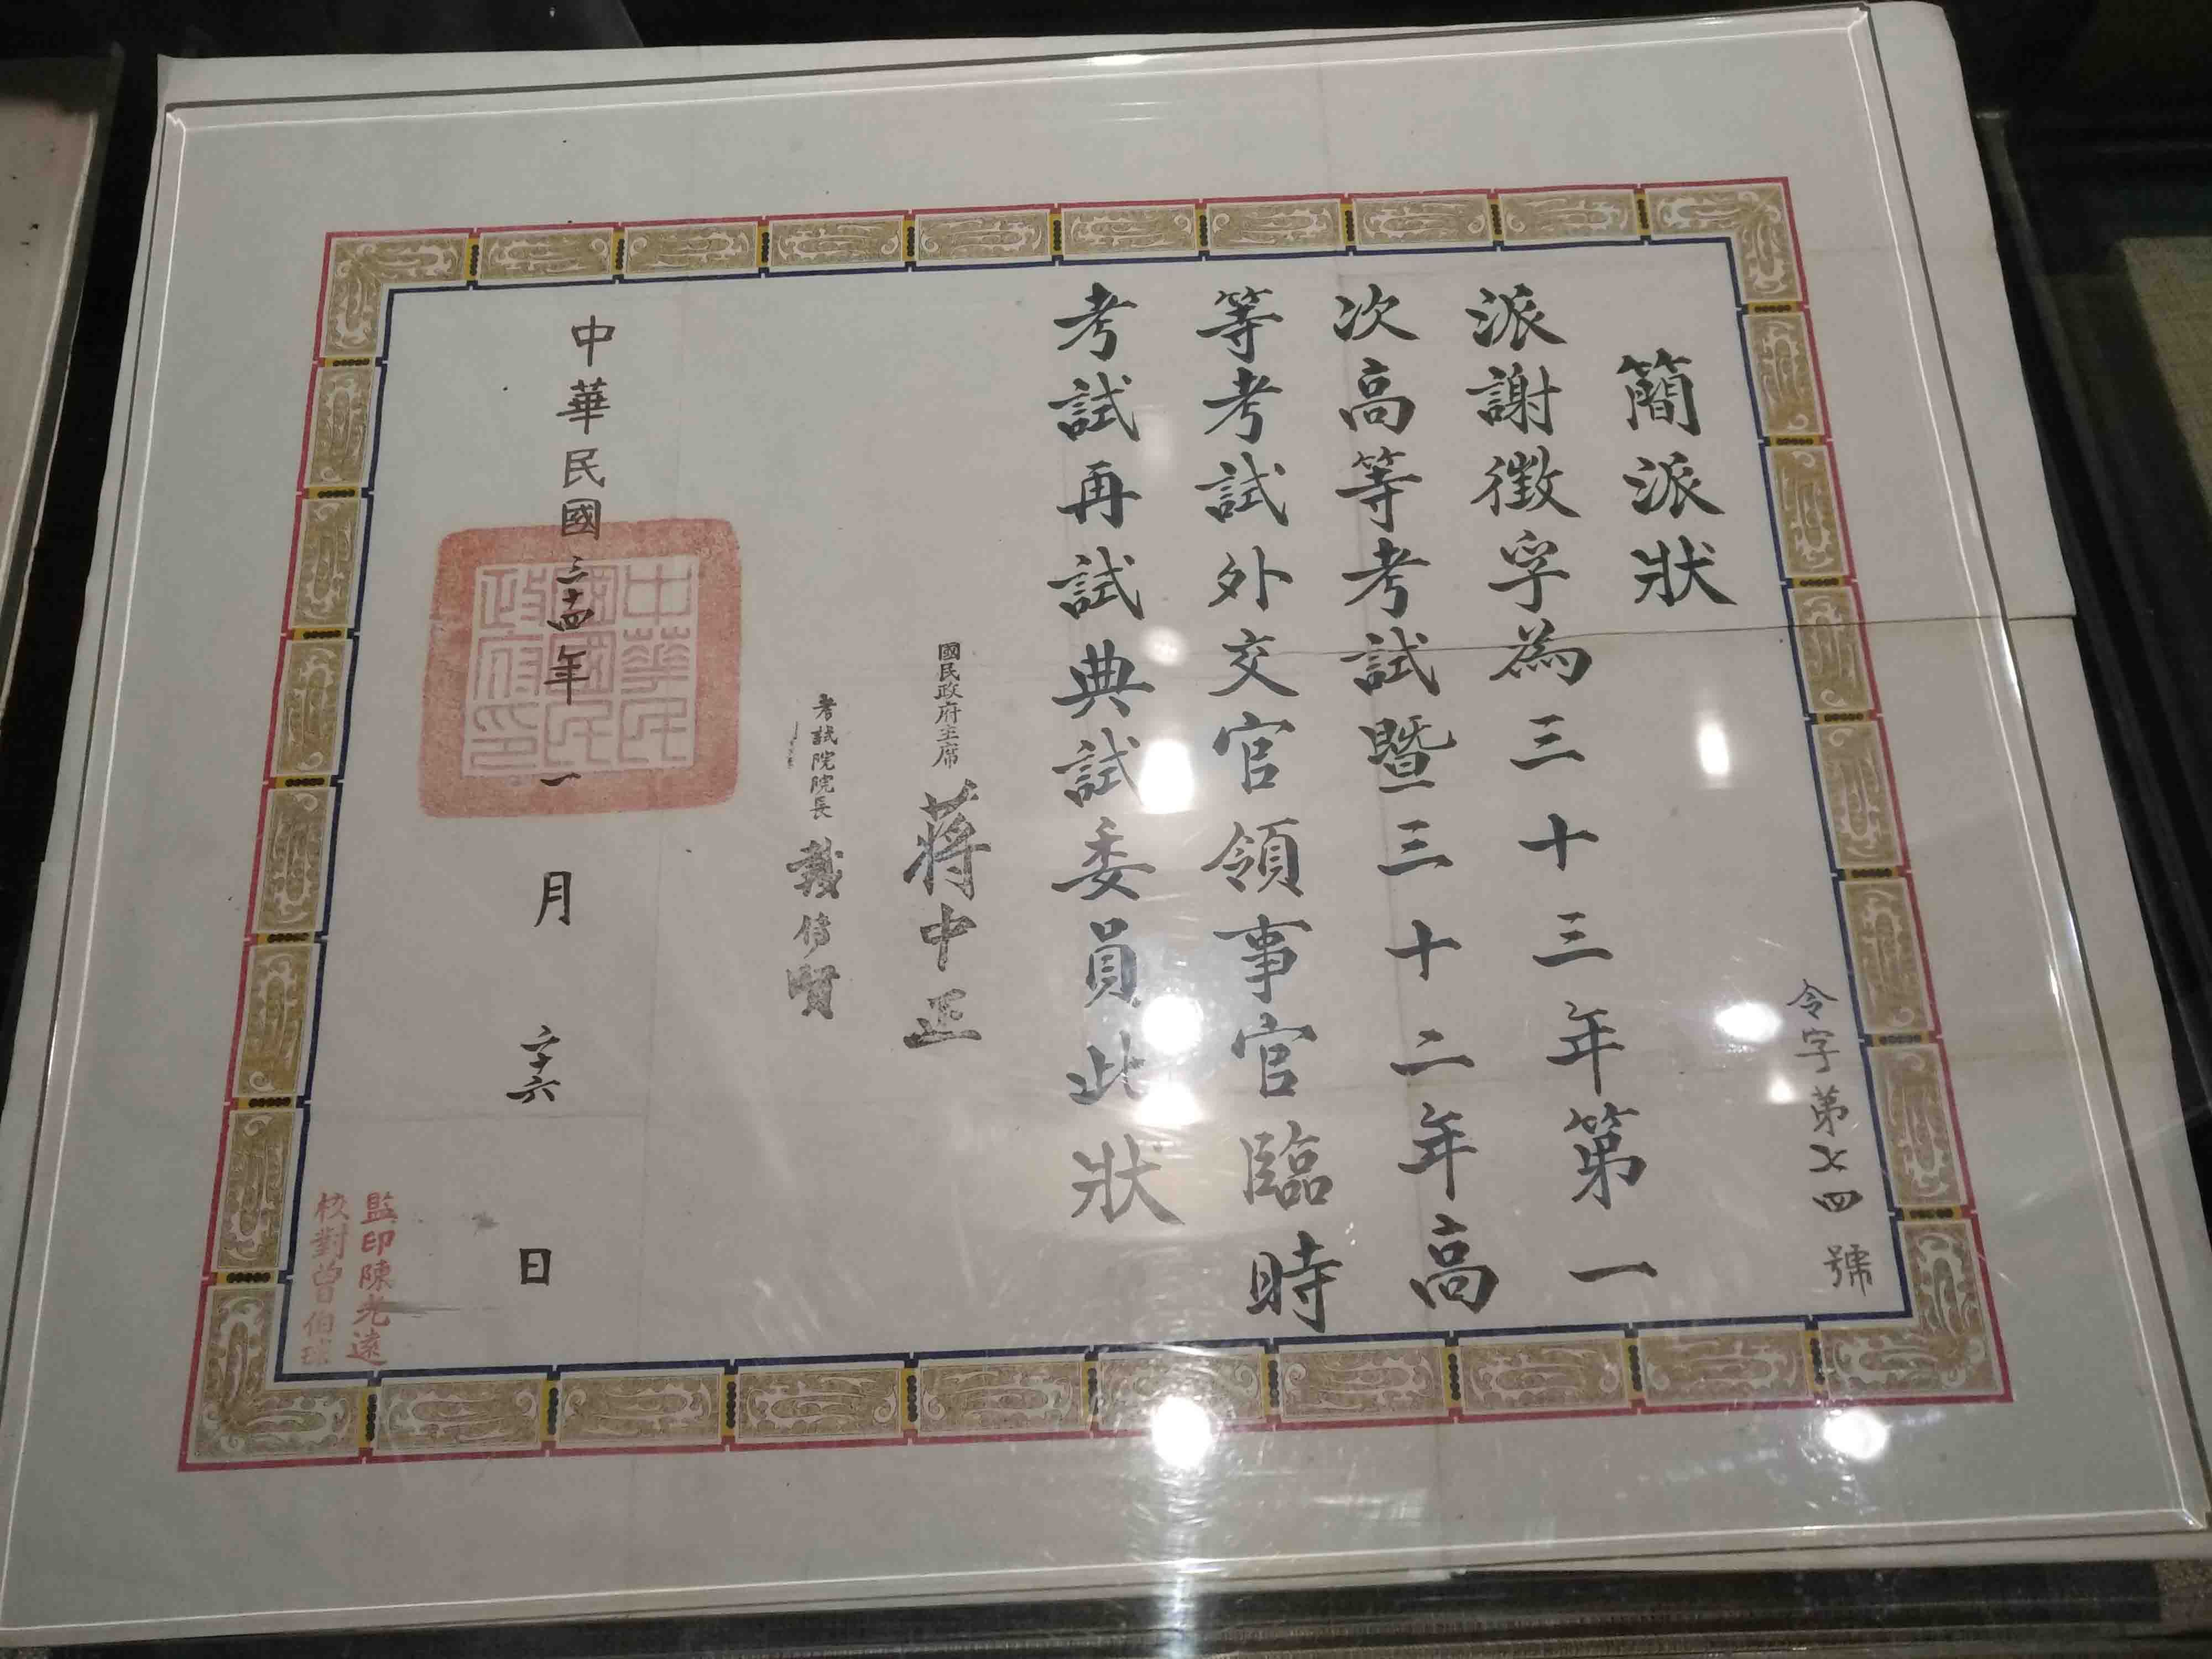 令字第七四號
簡派狀
派謝徵孚為三十三年第一
次高等考試暨三十二年高
等考試外交官領事官臨時
考試再試典試委員此狀
國民政府主席 蔣中正
考試院院長 戴傳賢
中華民國三十四年一月二十六日
中華民國國民政府印
監印陳光遠
校對曾伯